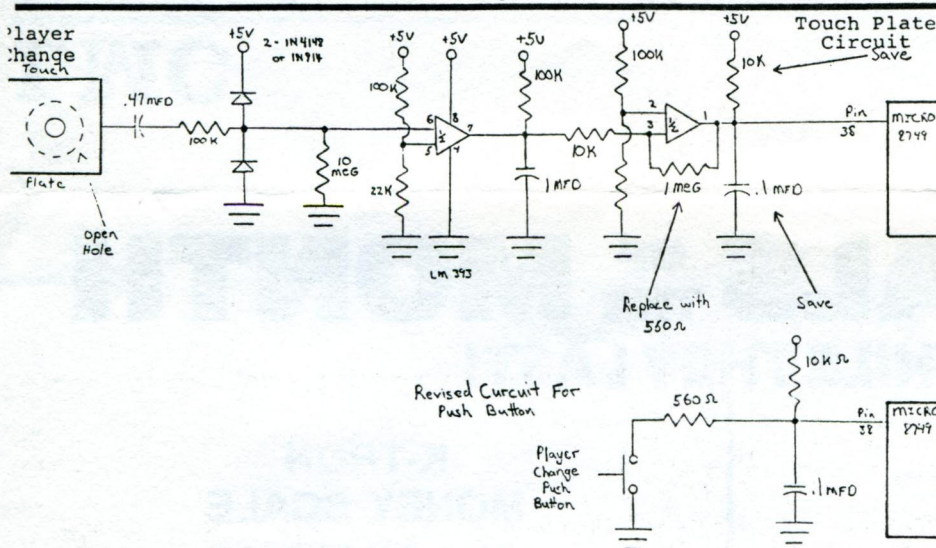 Player
Change
Touch
Plate
Open
Hole
.47MFD
100K
+5V
2- 1N4148
or 1N914
10
meG
+5V
100K
22K
+5V
6
5
8
4
7
1/2
LM 393
+5V
100K
1MFD
10K
+5V
100K
2
3
1
1/2
1 meG
Replace with
560Ω
+5V
10K
Touch Plate
Circuit
Save
.1MFD
Save
Pin
38
MICRO
8749
Revised Curcuit For
Push Button
Player
Change
Push
Button
560Ω
10KΩ
.1MFD
Pin
38
MICRO
8749